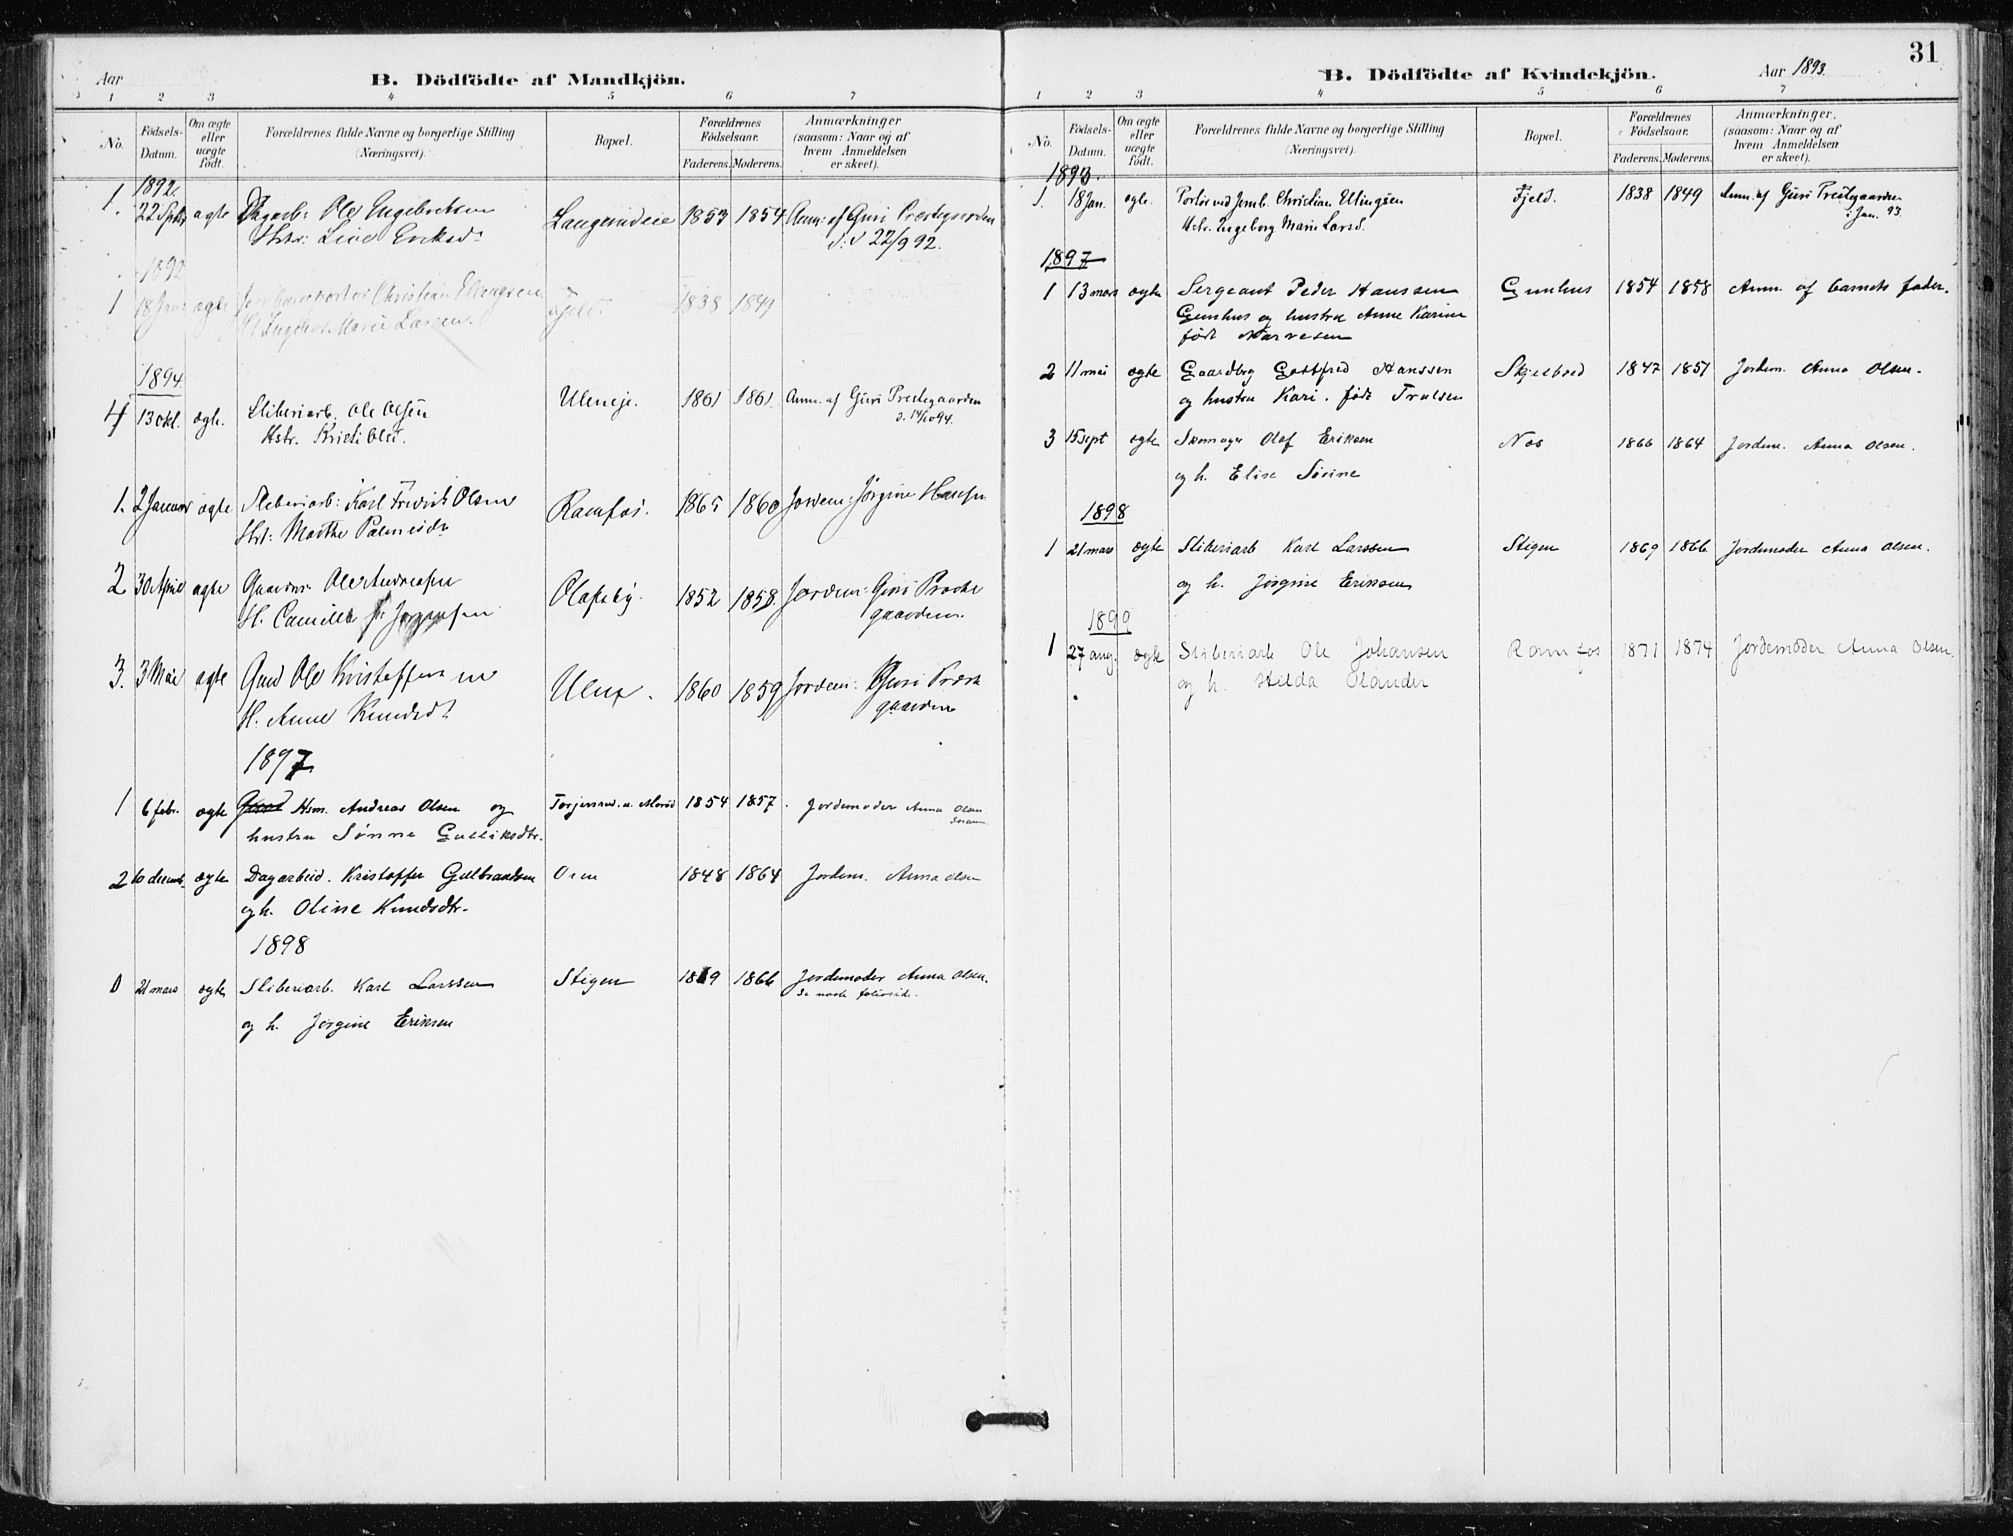 Aar
B. Dödfödte af Mandkjön.
1 2 3 4 5 6 7
No.
Födsels-Datum.
Om ægte eller uægte födt.
Forældrenes fulde Navne og borgerlige Stilling (Næringsvei).
Bopæl.
Forældrenes Födselsaar.
Faderens. Moderens.
Anmærkninger (saasom: Naar og af hvem Anmeldelsen er skeet).
1892.
1. 22 Septr ægte Dagarb: Ole Engebretsen Langerudeie 1853 1854 Anm: af Guri Præstegaarden
Hstr: Lise Eriksd. 22/9 92.
1892
1 18 Jan: ægte Christian Ellingsen Fjeld. 1838 1849
Ingeborg Marie Larsen.
1894.
4 13 okt. ægte. Sliberiarb. Ole Olsen Uleneje. 1861 1861. Anm. af Guri Prestegaarden
Hstr. d. 14/10 94.
1. 2 Januar ægte Sliberiarb: Karl Fredrik Olsen Ramfos. 1865 1860 Jordem: Jørgine Hansen
Hst: Marthe
2 30 April ægte Gaardbr: Ole Andreasen Olafsby. 1852 1858. Jordem: Guri Præste
H. Camilla f. Jørgensen gaarden.
3. 3 Mai ægte Gbd Ole Kristoffersen Ulen. 1860 1859 Jordem: Guri Præste
H. Anne Knudsdt gaarden
1897
1 6 febr. ægte Hsm. Andreas Olsen og 1854 1857. Jordemoder Anna Olsen
hustru Sønne Gulliksdtr.
2 10 decemb. ægte Dagarbeid. Kristoffer Gulbrandsen Oren 1848 1864 Jordem. Anna Olsen
og h. Oline Knudsdtr.
1898
0 21 mars ægte Sliberiarb. Karl Larssen Stigen 1869 1866 Jordemoder Anna Olsen.
og h. Jørgine Eriksen Se næste folioside.
31
B. Dödfödte af Kvindekjön.
Aar 1893.
1 2 3 4 5 6 7
No.
Födsels-Datum.
Om ægte eller uægte födt.
Forældrenes fulde Navne og borgerlige Stilling (Næringsvei).
Bopæl.
Forældrenes Födselsaar.
Faderens. Moderens.
Anmærkninger. (saasom: Naar og af hvem Anmeldelsen er skeet).
1893.
1. 18 Jan. ægte. Portør ved Jernb. Christian Ellingsen Fjeld. 1838 1849 Anm. af Guri Prestegaarden
Hstr. Ingeborg Marie Larsd. i Jan. 93.
1897
1 13 mars ægte Sergeant Peder Hanssen Gunhus 1854 1858 Anm. af barnets fader.
Gunhus og hustru Anne Karine
født Narvesen
2 11 mai ægte Gaardbrg Gottfred Hanssen Skjelbred 1847 1851 Jordem. Anna Olsen.
og hustru Kari. født Trulsen
3 15 sept ægte Skomager Olaf Eriksen Nos 1866 1864 Jordem. Anna Olsen.
og h. Elise Sørine
1898
1 21 mars ægte Sliberiarb Karl Larssen Stigen 1869 1866 Jordemoder Anna Olsen.
og h. Jørgine Eriksen
1899
1 27 aug. ægte Sliberiarb Ole Johansen Ramfos 1871 1874 Jordemoder Anna Olsen.
og h. Hilda Olander